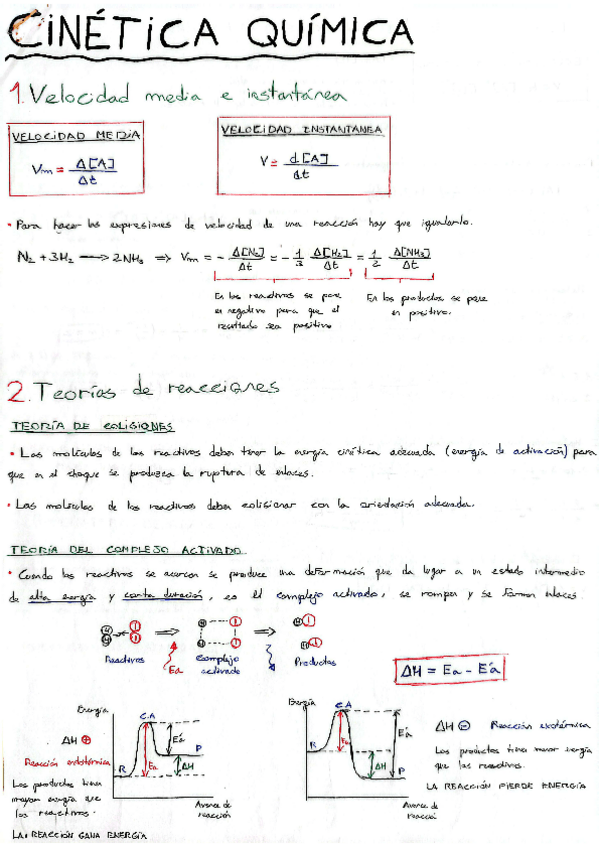 CINÉTICA QUÍMICA
1. Velocidad media e instantánea
VELOCIDAD MEDIA
Vm = Δ[A] / Δt
VELOCIDAD INSTANTANEA
V = d[A] / dt
• Para hacer las expresiones de velocidad de una reacción hay que igualarla.
N₂ + 3H₂ → 2NH₃ ⇒ Vm = - Δ[N₂] / Δt = - 1/3 Δ[H₂] / Δt = 1/2 Δ[NH₃] / Δt
En los reactivos se pone
en negativo para que el
resultado sea positivo
En los productos se pone
en positivo.
2. Teorías de reacciones
TEORÍA DE COLISIONES
• Las moléculas de los reactivos deben tener la energía cinética adecuada (energía de activación) para
que en el choque se produzca la ruptura de enlaces.
• Las moléculas de los reactivos deben colisionar con la orientación adecuada.
TEORÍA DEL COMPLEJO ACTIVADO
• Cuando los reactivos se acercan se produce una deformación que da lugar a un estado intermedio
de alta energía y corta duración, es el complejo activado, se rompen y se forman enlaces.
H I
H I
Reactivos
Ea
Complejo
activado
H I
H I
Productos
ΔH = Ea - E'a
ΔH ⊕
Reacción endotérmica
Los productos tienen
mayor energía que
los reactivos.
LA REACCIÓN GANA ENERGÍA
Energía
C.A
R
Ea
E'a
P
ΔH
Avance de
reacción
Energía
C.A
R
Ea
E'a
ΔH
P
Avance de
reacción
ΔH ⊖ Reacción exotérmica
Los productos tienen menor energía
que los reactivos.
LA REACCIÓN PIERDE ENERGÍA